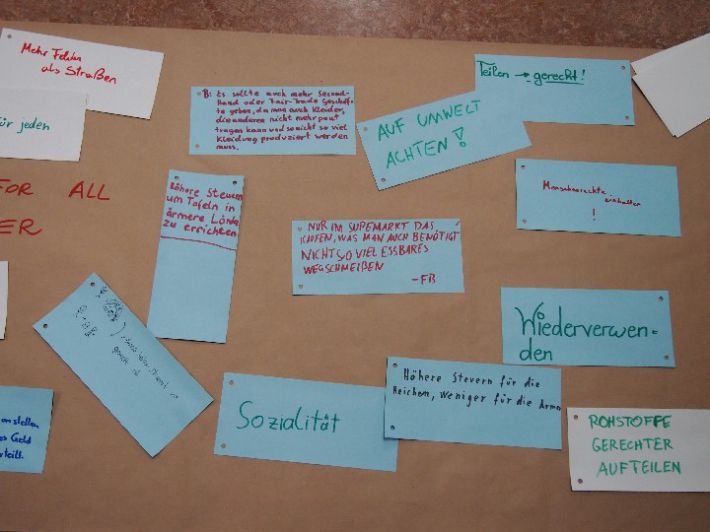 Mehr Felder
als Straßen
für jeden
FOR ALL
ER
B: Es sollte auch mehr Second-
Hand oder Fair-Trade Geschäf-
te geben, da man auch Kleider,
die anderen nicht mehr passt
tragen kann und so nicht so viel
Kleidung produziert werden
muss.
AUF UMWELT
ACHTEN!
Teilen → gerecht!
Höhere Steuern
um Tafeln in
ärmere Länder
zu errichten
NUR IM SUPEMARKT DAS
KAUFEN, WAS MAN AUCH BENÖTIGT
NICHT SO VIEL ESSBARES
WEGSCHMEIßEN
-FB
Menschenrechte einhalten
!
Wiederverwen-
den
Sozialität
Höhere Steuern für die
Reichen, weniger für die Armen
ROHSTOFFE
GERECHTER
AUFTEILEN
anstellen
Geld